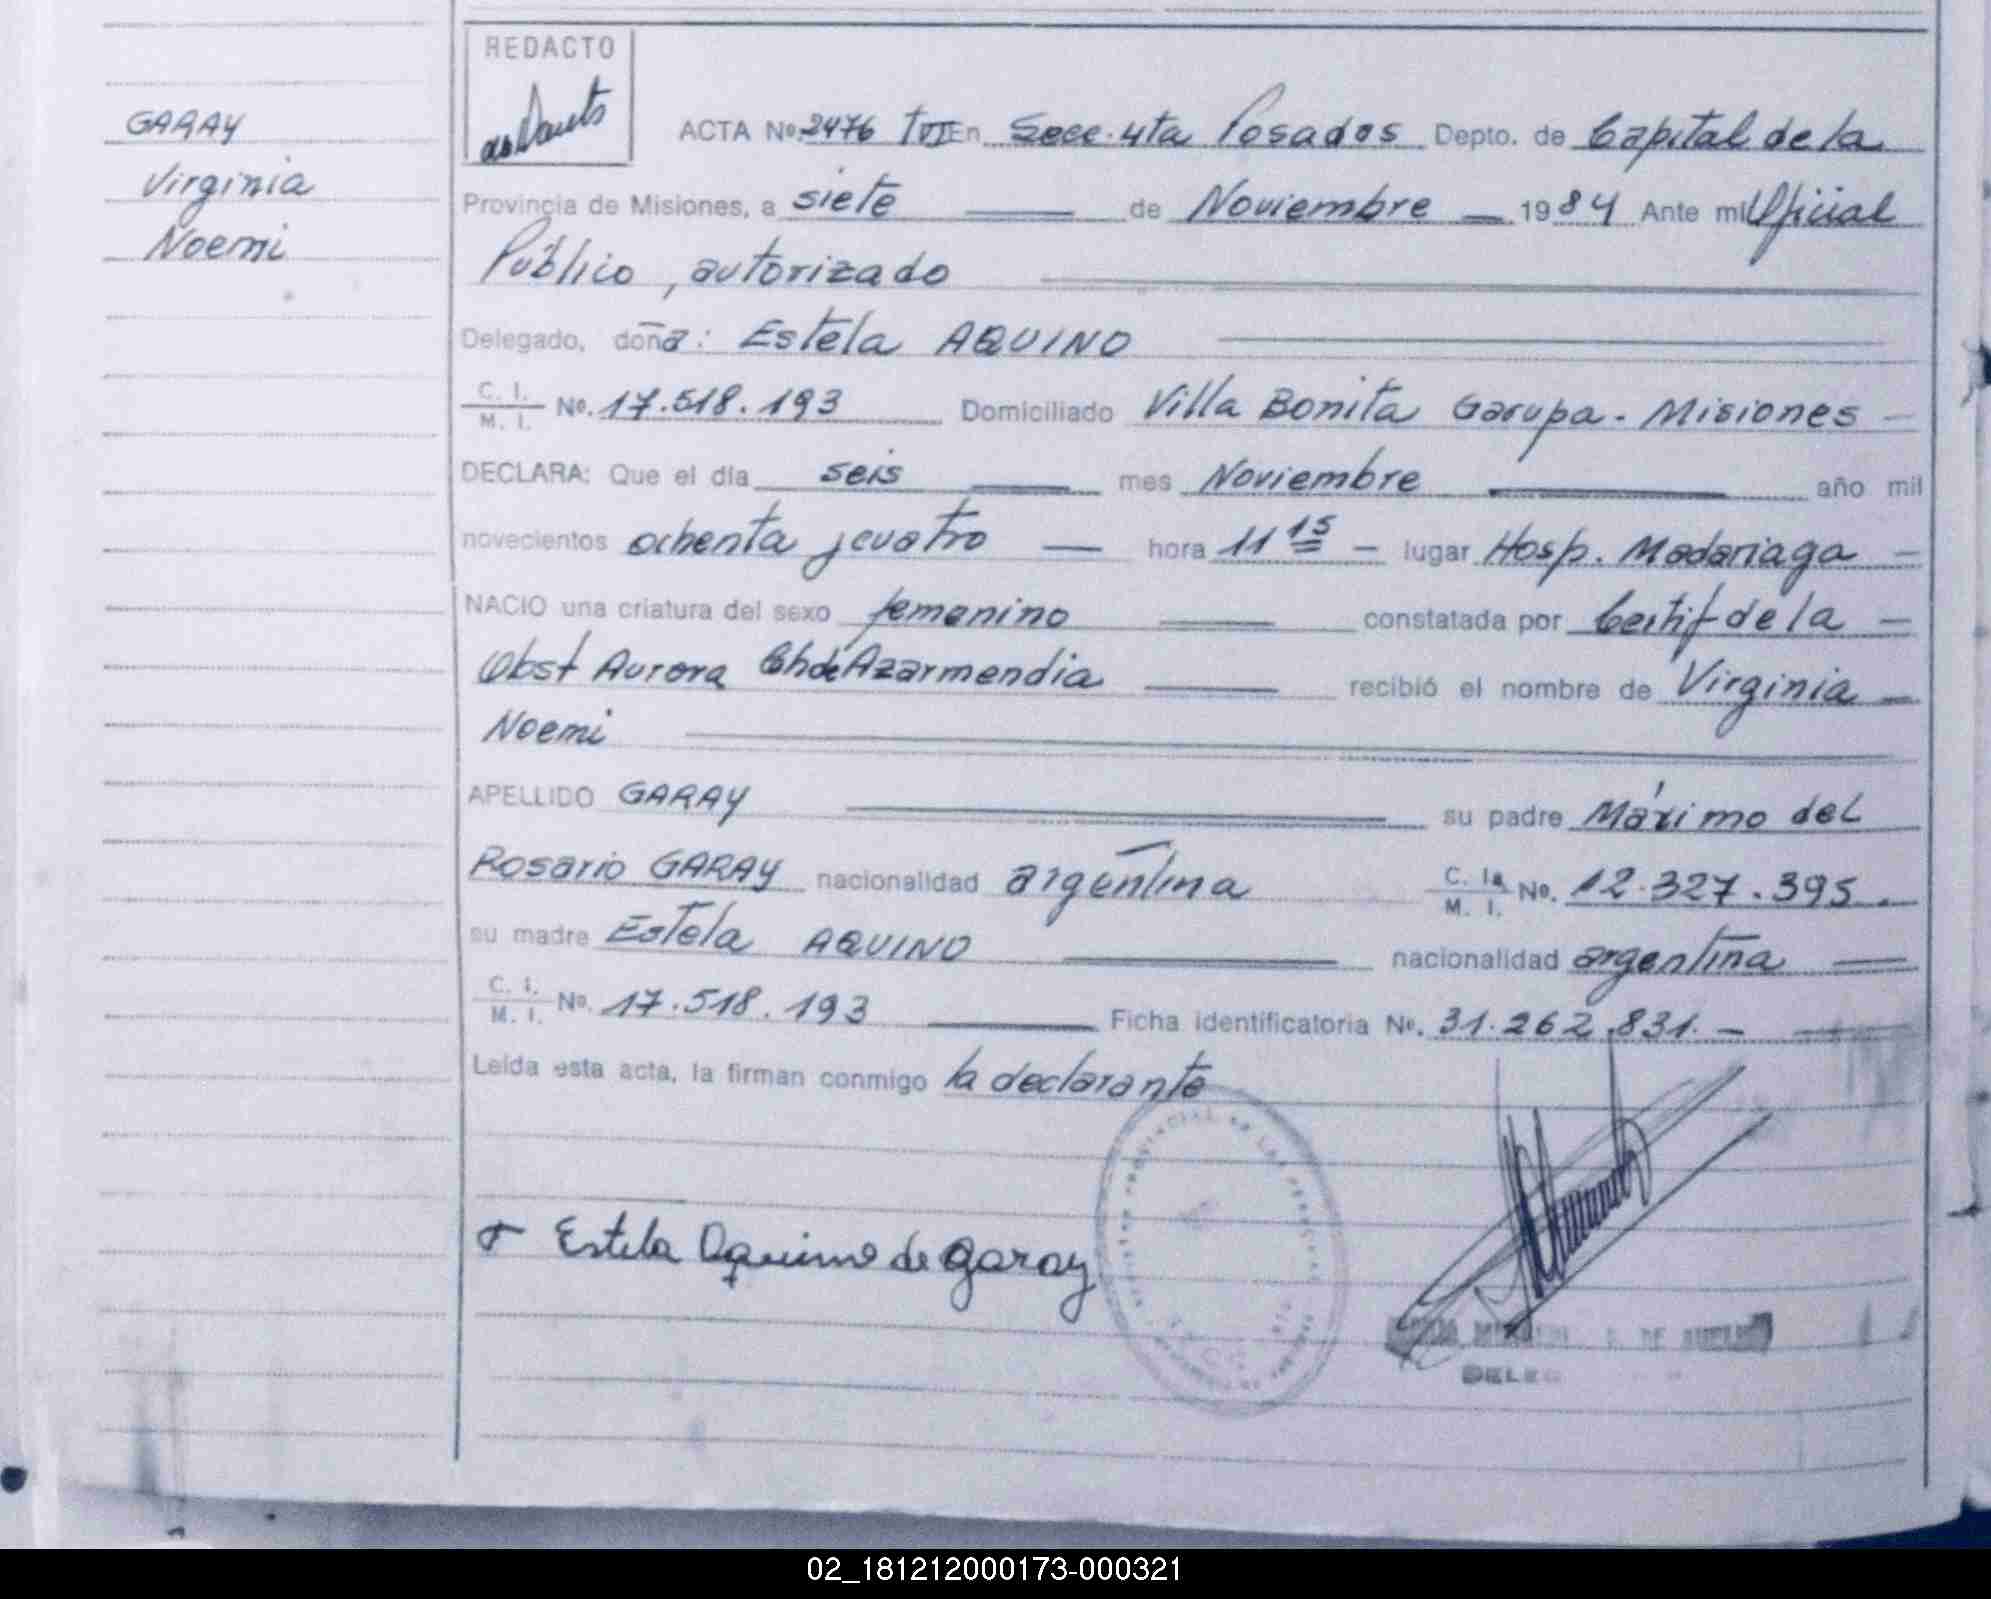 REDACTO
GARAY
Virginia
Noemi
ACTA No. 2476 TVII En Secc. 4ta Posadas Depto. de Capital de la
Provincia de Misiones, a siete de Noviembre 1984 Ante mi Oficial
Público, autorizado
Delegado, doña: Estela AQUINO
C. I.
M. I. No. 17.518.193 Domiciliado Villa Bonita Garupa - Misiones -
DECLARA: Que el día seis mes Noviembre año mil
novecientos ochenta y cuatro hora 11 15 - lugar Hosp. Madariaga -
NACIO una criatura del sexo femenino constatada por Certif de la -
Obst Aurora Ch de Azarmendia recibió el nombre de Virginia
Noemi
APELLIDO GARAY su padre Máximo del
Rosario GARAY nacionalidad argentina C. I. M. I. No. 12.327.395.
su madre Estela AQUINO nacionalidad argentina
C. I.
M. I. No. 17.518.193 Ficha identificatoria No. 31.262.831.-
Leída esta acta, la firman conmigo la declarante
Estela Aquino de Garay
DELEG
02_181212000173-000321